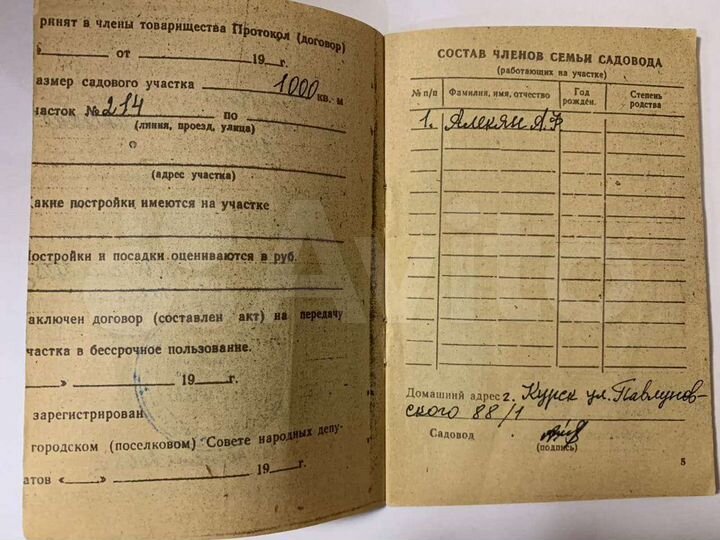 ринят в члены товарищества Протокол (договор)
от 19 г.
азмер садового участка 1000 кв. м
часток № 214 по
(линия, проезд, улица)
(адрес участка)
акие постройки имеются на участке
остройки и посадки оцениваются в руб.
аключен договор (составлен акт) на передачу
частка в бессрочное пользование.
» 19 г.
зарегистрирован
городском (поселковом) Совете народных депу-
атов « » 19 г.
СОСТАВ ЧЛЕНОВ СЕМЬИ САДОВОДА
(работающих на участке)
№ п/п Фамилия, имя, отчество Год рожден. Степень родства
1. Алекян А.Ф
Домашний адрес г. Курск ул. Павлунов-
ского 88/1
Садовод
(подпись)
5
Avito